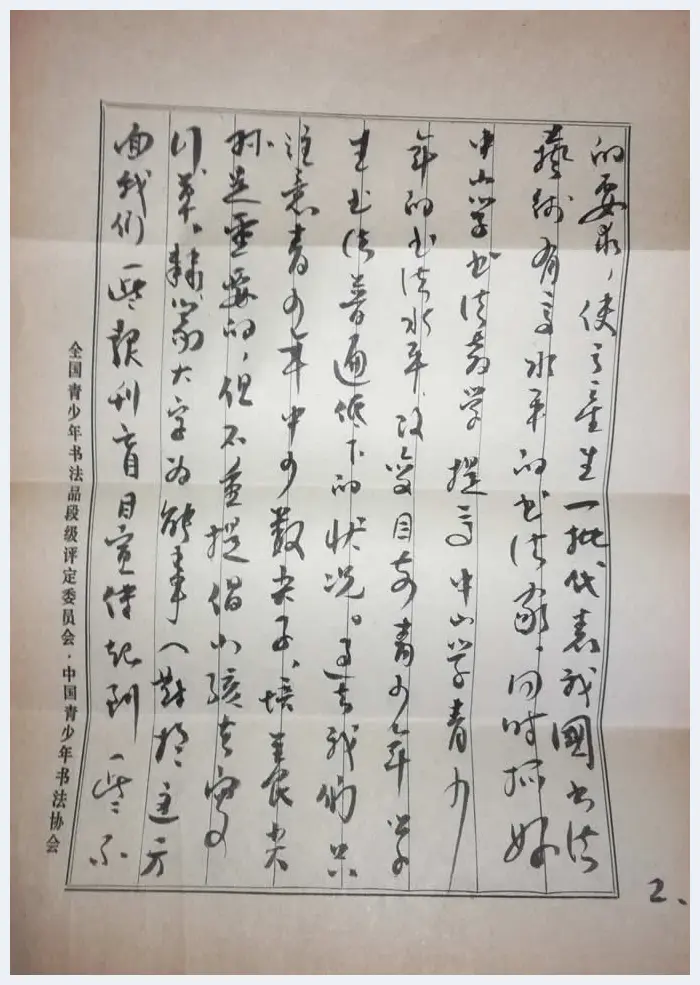 的要求，使之产生一批代表我國书法
藝術有高水平的书法家。同时抓好
中小学书法教学 提高中小学青少
年的书法水平，改变目前青少年学
生书法普遍低下的状况。过去我们只
注意青少年中少数尖子、培养尖
子是重要的，但不宜提倡小孩去写
行草、隸篆大字为能事 这方
面我们一些報刊盲目宣传起到一些不
全国青少年书法品段级评定委员会·中国青少年书法协会
2、